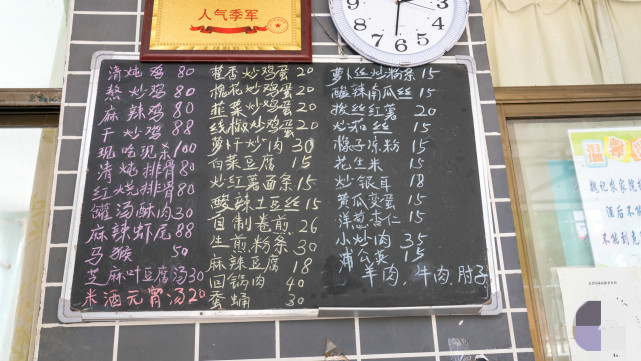 人气季军
清炖鸡 80
熬炒鸡 80
麻辣鸡 80
干炒鸡 88
现吃现杀 100
清炖排骨 80
红烧排骨 80
罐汤酥肉 30
麻辣虾尾 88
马猴 50
芝麻叶豆腐汤 30
米酒元宵汤 20
藿香炒鸡蛋 20
槐花炒鸡蛋 20
韭菜炒鸡蛋 20
线椒炒鸡蛋 20
萝卜炒肉 30
白菜豆腐 15
炒红薯面条 15
酸辣土豆丝 15
自制卷煎 26
生煎粉条 30
麻辣豆腐 18
回锅肉 40
蚕蛹 30
萝卜丝炒粉条 15
酸辣南瓜丝 15
拔丝红薯 20
炒茄丝 15
橡子凉粉 15
花生米 15
炒银耳 18
黄瓜变蛋 15
洋葱杏仁 15
小炒肉 35
蒲公英 15
羊肉,牛肉,肘子
12
1
2
3
4
5
6
7
8
9